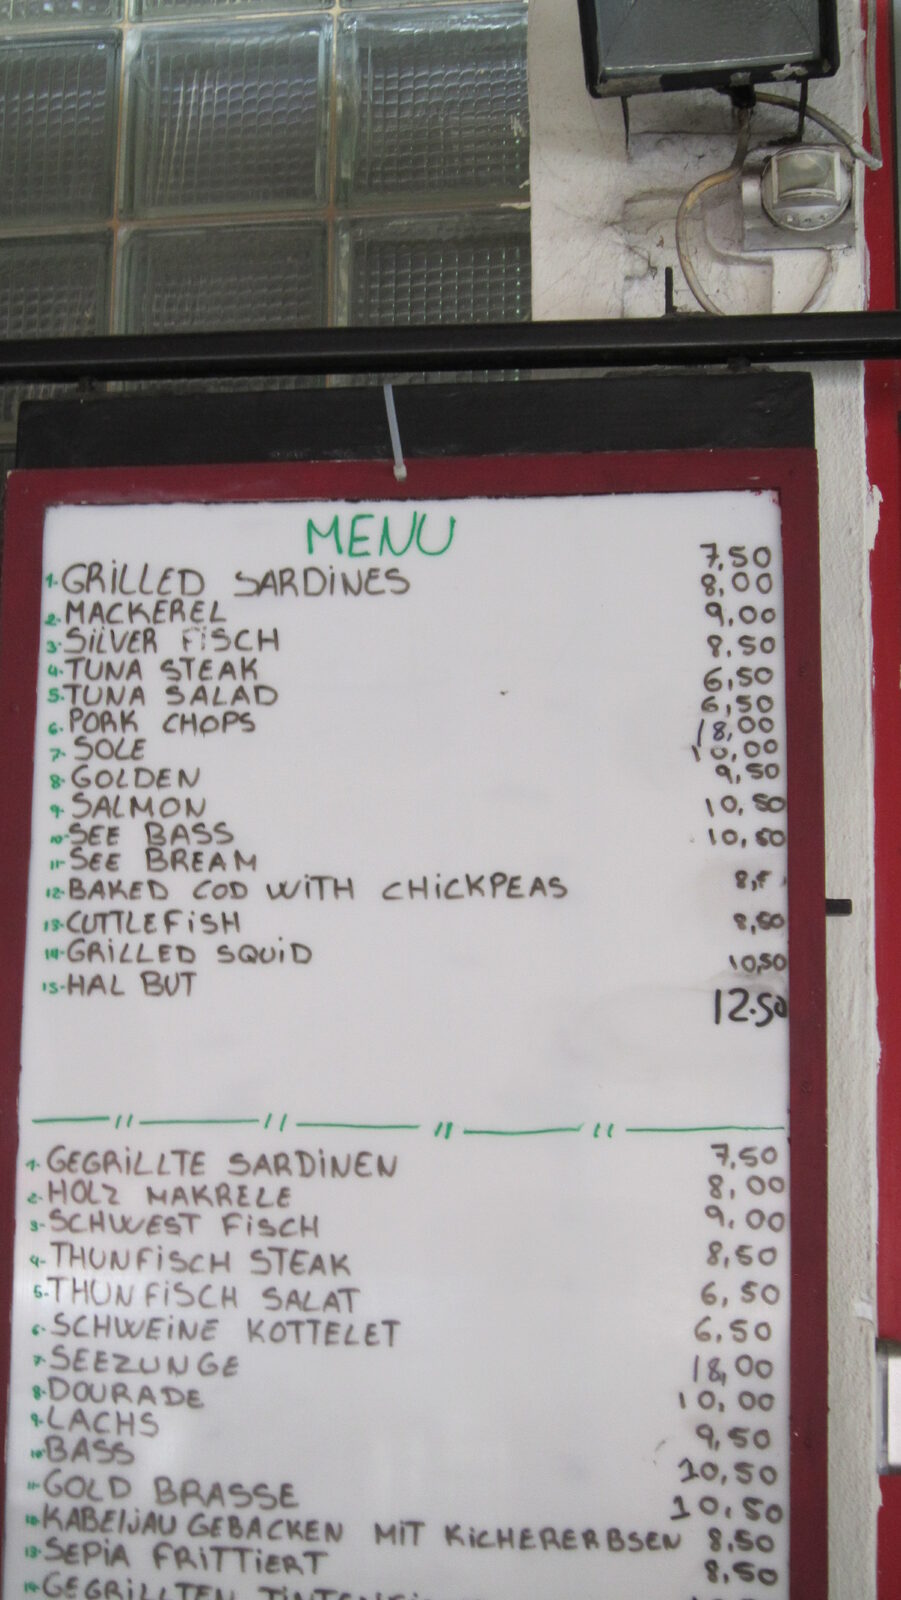 MENU
1-GRILLED SARDINES 7,50
2-MACKEREL 8,00
3-SILVER FISCH 9,00
4-TUNA STEAK 8,50
5-TUNA SALAD 6,50
6-PORK CHOPS 6,50
7-SOLE 18,00
8-GOLDEN 10,00
9-SALMON 9,50
10-SEE BASS 10,50
11-SEE BREAM 10,50
12-BAKED COD WITH CHICKPEAS
13-CUTTLEFISH 8,50
14-GRILLED SQUID 10,50
15-HAL BUT 12.50
1-GEGRILLTE SARDINEN 7,50
2-HOLZ MAKRELE 8,00
3-SCHWEST FISCH 9,00
4-THUNFISCH STEAK 8,50
5-THUNFISCH SALAT 6,50
6-SCHWEINE KOTTELET 6.50
7-SEEZUNGE 18,00
8-DOURADE 10,00
9-LACHS 9,50
10-BASS 10,50
11-GOLD BRASSE 10,50
12-KABELJAU GEBACKEN MIT KICHERERBSEN 8,50
13-SEPIA FRITTIERT 8,50
14-GEGRILLTEN